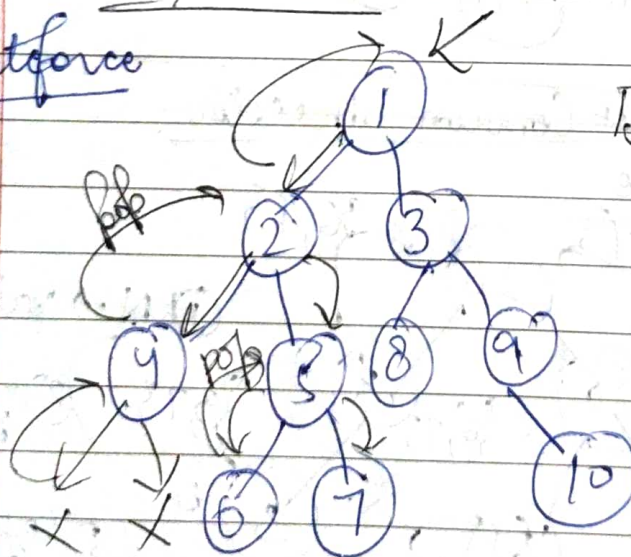 tforce
K
1
pop
2
3
4
pop
5
8
9
X
X
6
7
10